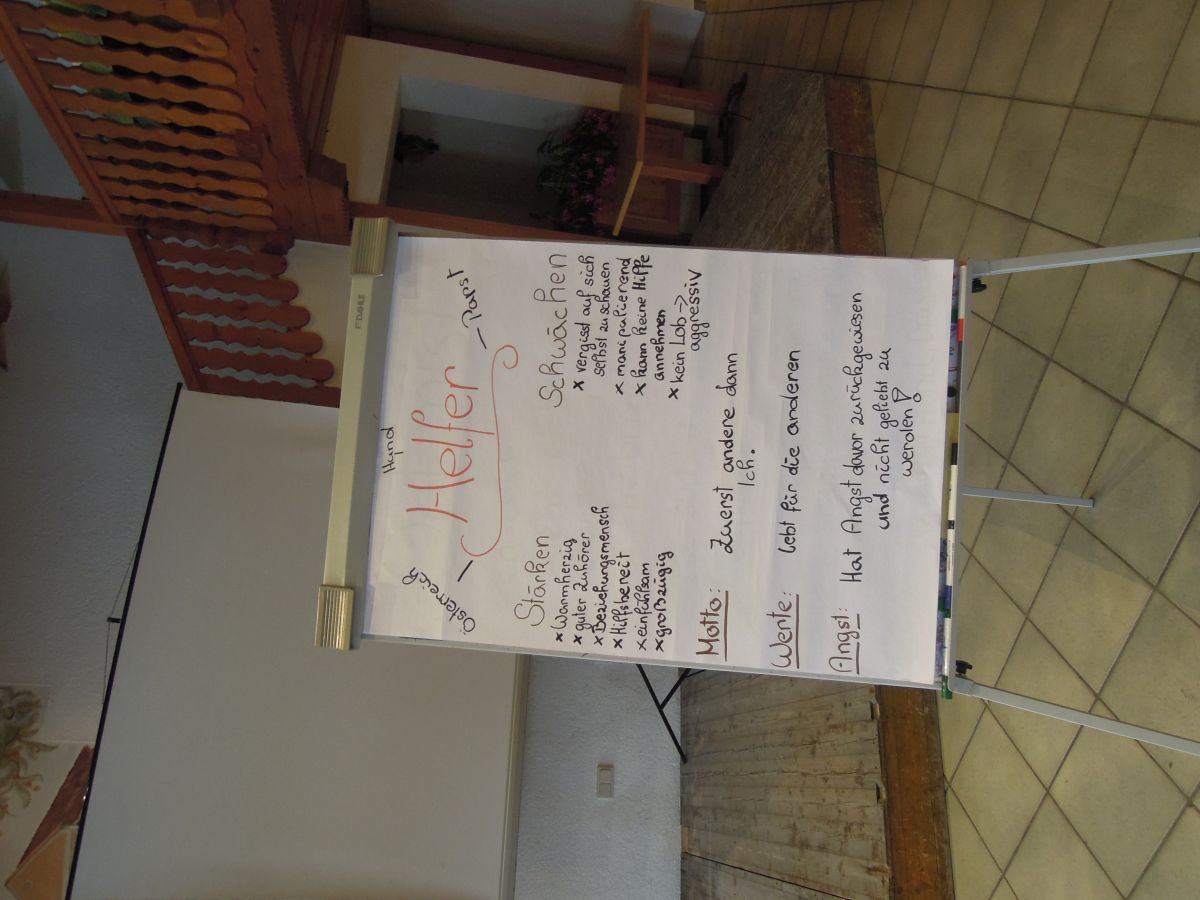 DAHLE
Hund
Österreich
Papst
Helfer
Stärken
x Warmherzig
x guter Zuhörer
x Beziehungsmensch
x Hilfsbereit
x einfühlsam
x großzügig
Schwächen
x vergisst auf sich
selbst zu schauen
x manipulierend
x kann keine Hilfe
annehmen
x kein Lob →
aggressiv
Motto: Zuerst andere dann
Ich.
Werte: lebt für die anderen
Angst: Hat Angst davor zurückgewiesen
und nicht geliebt zu
werden!